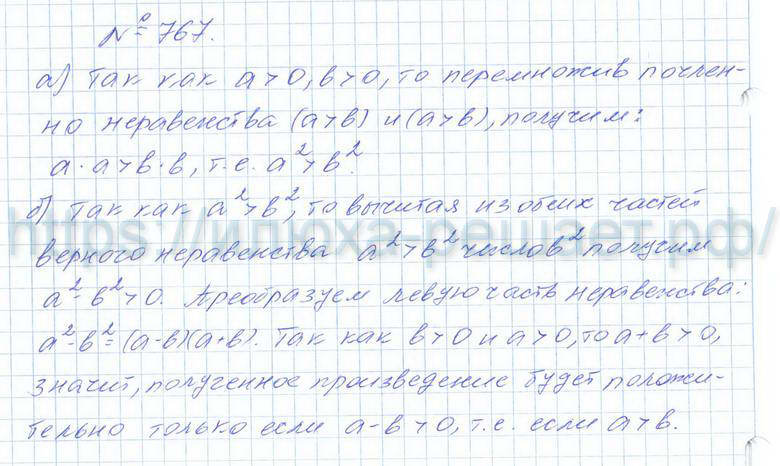 № 767.
а) Так как a>0, в>0, то перемножив почлен-
но неравенства (a>в) и (a>в), получим:
a·a>в·в, т.е. a²>в².
б) Так как a²>в², то вычитая из обеих частей
верного неравенства a²>в² число в² получим
a²-в²>0. Преобразуем левую часть неравенства:
a²-в²=(a-в)(a+в). Так как в>0 и a>0, то a+в>0,
значит, полученное произведение будет положи-
тельно только если a-в>0, т.е. если a>в.
https://илюха-решает.рф/